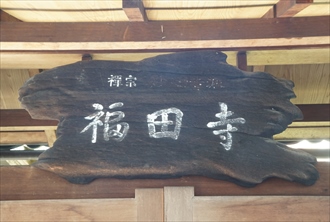 禅宗
福田寺